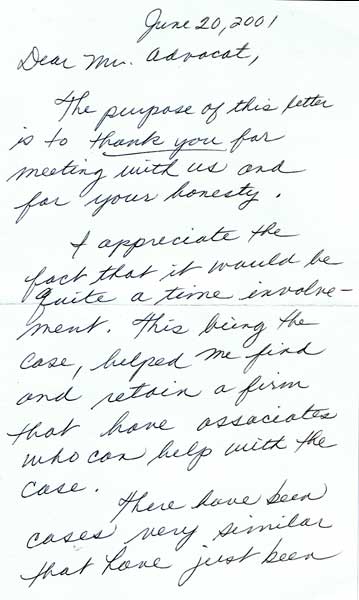 June 20, 2001
Dear Mr. Advocat,
The purpose of this letter
is to thank you for
meeting with us and
for your honesty.
I appreciate the
fact that it would be
quite a time involve-
ment. This being the
case, helped me find
and retain a firm
that have associates
who can help with the
case.
There have been
cases very similar
that have just been